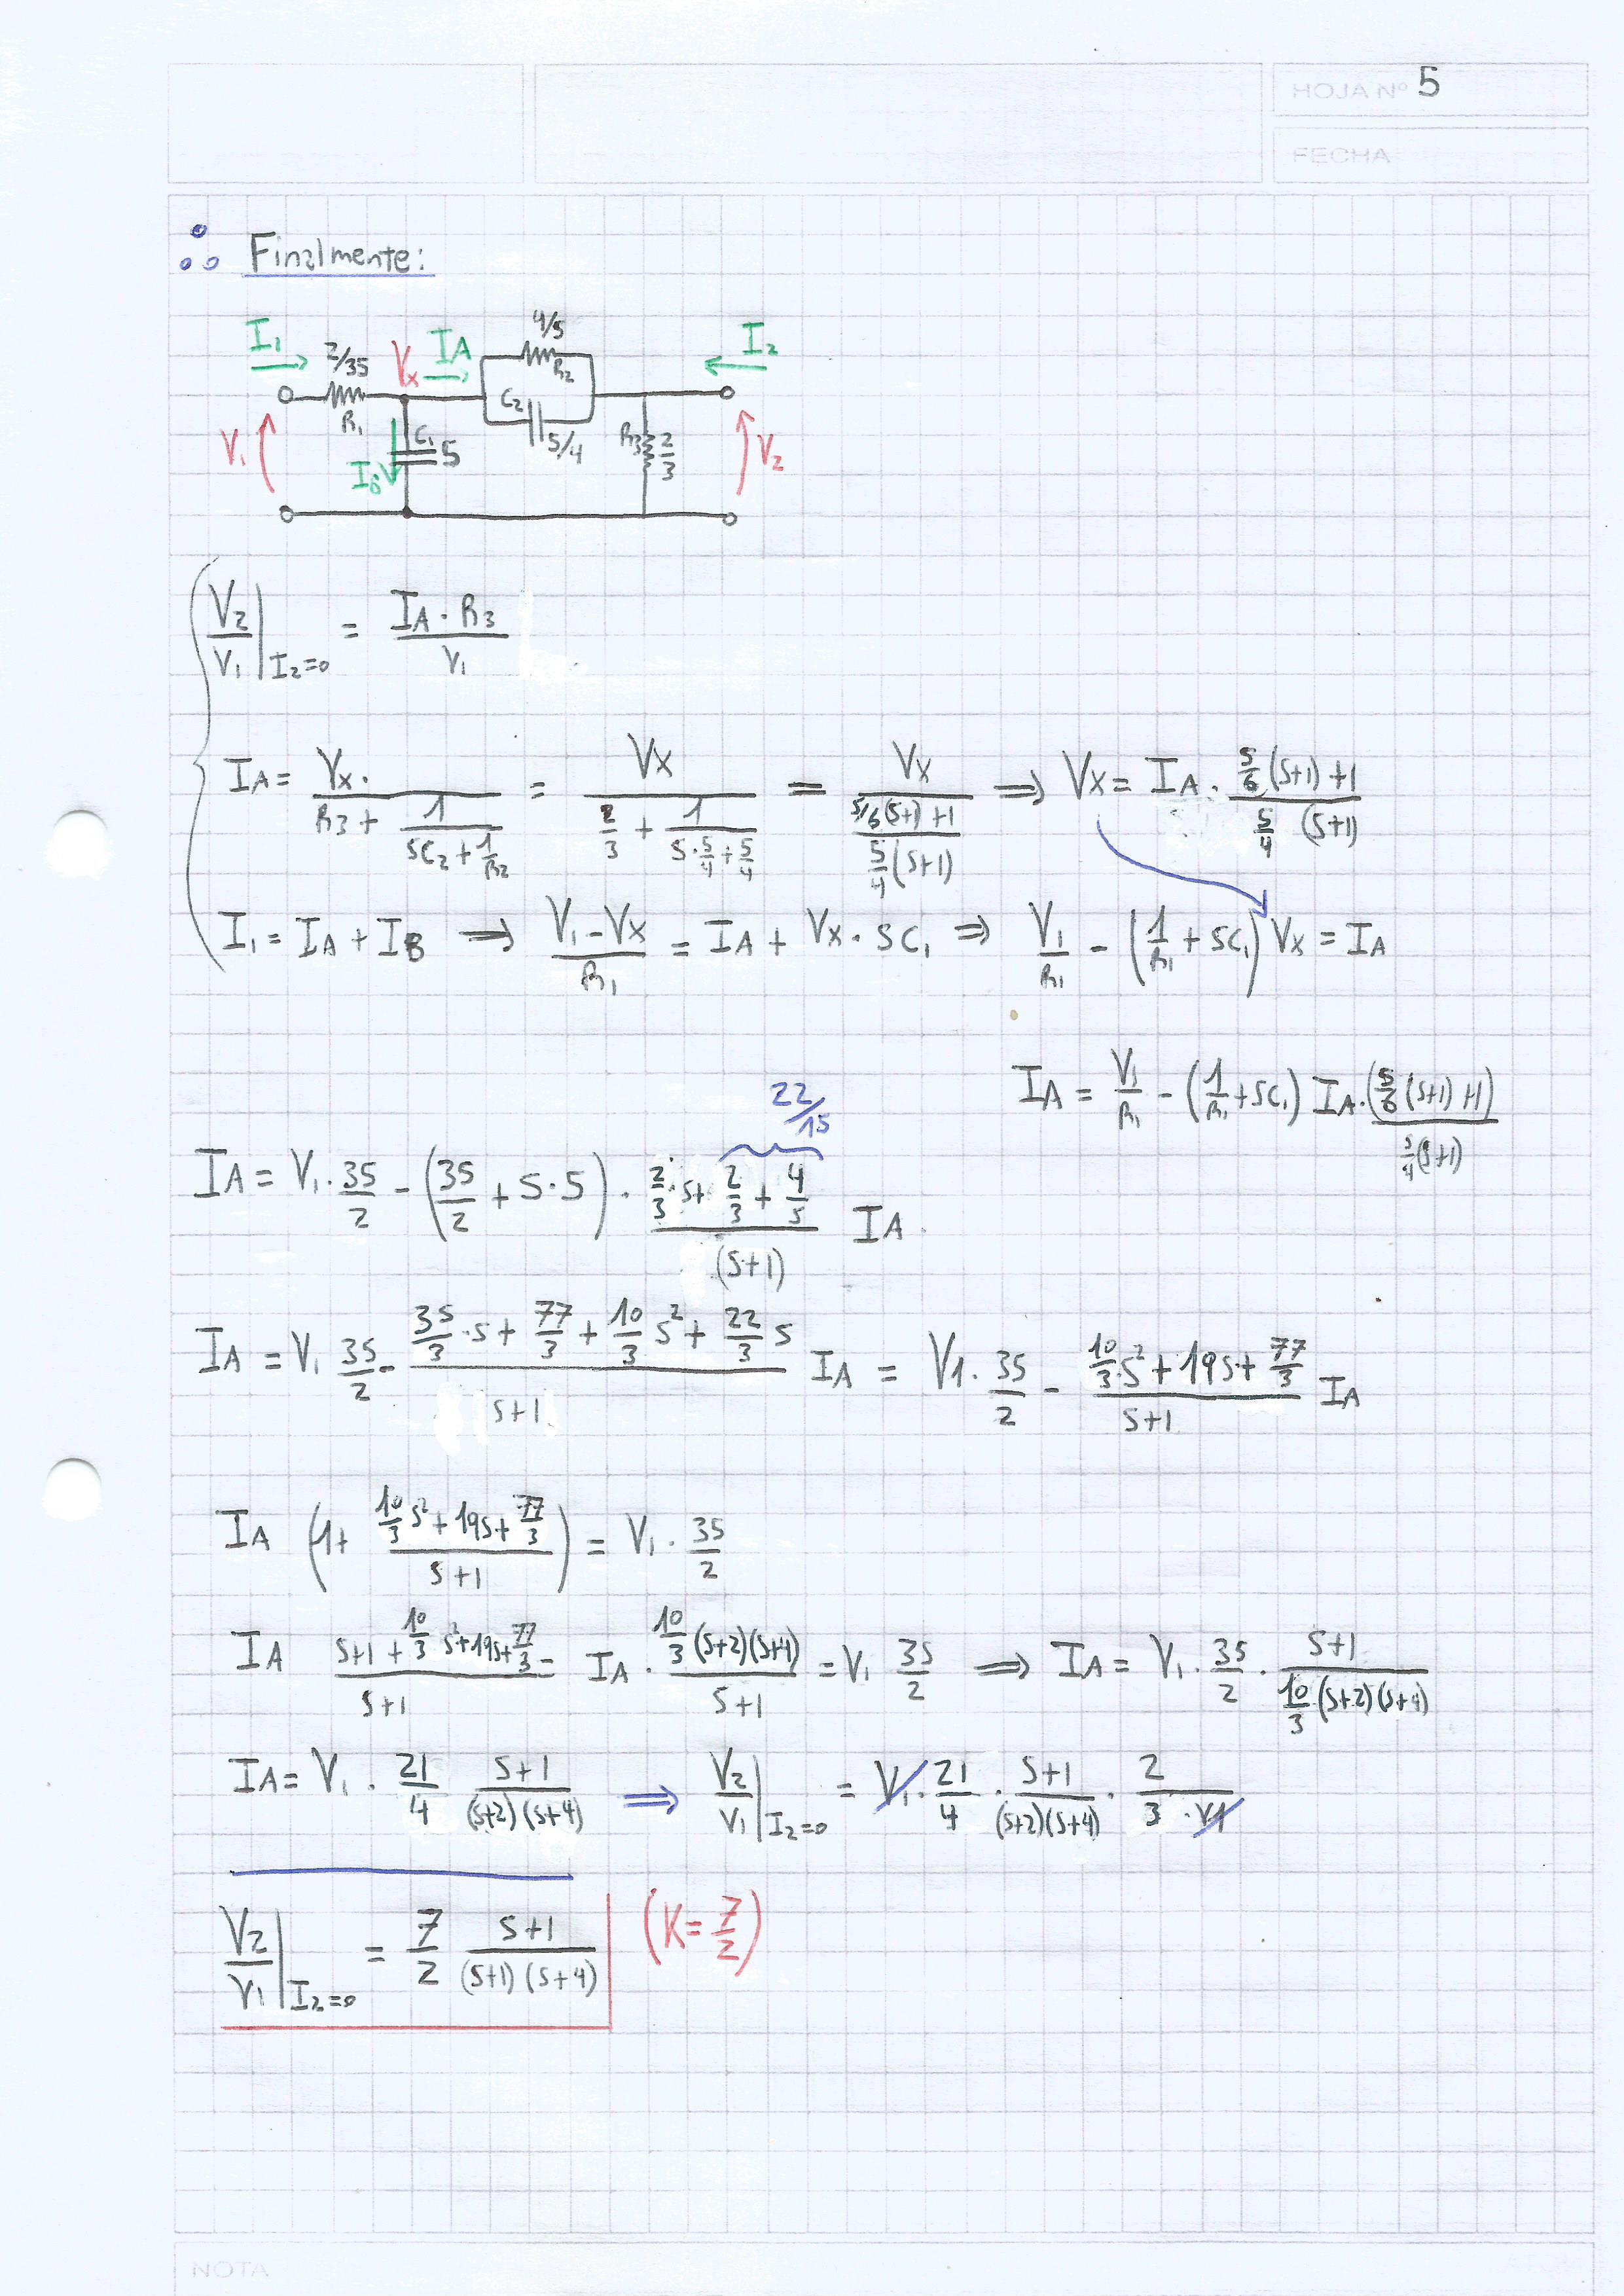 HOJA Nº 5
FECHA
∴ Finalmente:
I1 2/35 Vx IA 4/5 I2
R1 R2
C2
V1 C1 5 5/4 R3 2/3 V2
IB
V2/V1 |I2=0 = IA · R3 / V1
IA = Vx· / (R3 + 1/(SC2 + 1/R2)) = Vx / (2/3 + 1/(S·5/4 + 5/4)) = Vx / ((5/6(S+1) + 1) / (5/4(S+1))) ⇒ Vx = IA · (5/6 (S+1) + 1) / (5/4 (S+1))
I1 = IA + IB ⇒ (V1 - Vx)/R1 = IA + Vx · SC1 ⇒ V1/R1 - (1/R1 + SC1) Vx = IA
IA = V1/R1 - (1/R1 + SC1) IA · (5/6 (S+1) + 1) / (5/4 (S+1))
22/15
IA = V1 · 35/2 - (35/2 + S·5) · (2/3·S + 2/3 + 4/5) / (S+1) IA
IA = V1 35/2 - (35/3 ·S + 77/3 + 10/3 S² + 22/3 S) / (S+1) IA = V1 · 35/2 - (10/3 S² + 19S + 77/3) / (S+1) IA
IA (1 + (10/3 S² + 19S + 77/3) / (S+1)) = V1 · 35/2
IA (S+1 + 10/3 S² + 19S + 77/3) / (S+1) = IA · (10/3 (S+2)(S+4)) / (S+1) = V1 35/2 ⇒ IA = V1 · 35/2 · (S+1) / (10/3 (S+2)(S+4))
IA = V1 · 21/4 (S+1) / ((S+2)(S+4)) ⇒ V2/V1 |I2=0 = V1 · 21/4 · (S+1) / ((S+2)(S+4)) · 2 / (3 · V1)
V2/V1 |I2=0 = 7/2 (S+1) / ((S+1)(S+4)) (K = 7/2)
NOTA